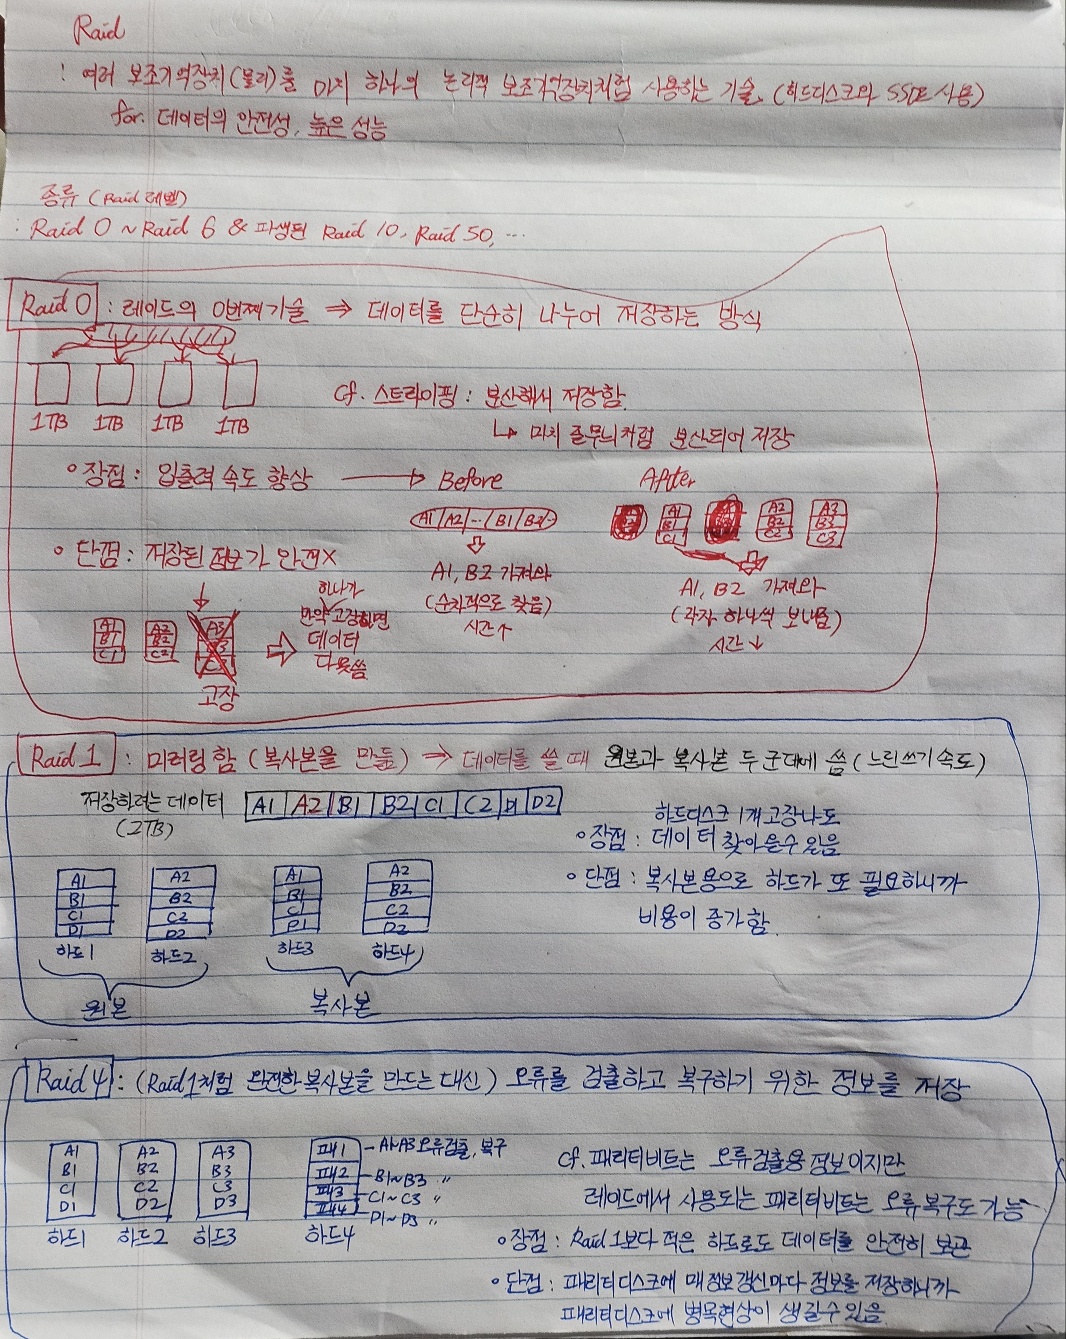 Raid
: 여러 보조기억장치(물리)를 마치 하나의 논리적 보조기억장치처럼 사용하는 기술. (하드디스크와 SSD로 사용)
for. 데이터의 안전성, 높은 성능
종류 (Raid 레벨)
: Raid 0 ~ Raid 6 & 파생된 Raid 10, Raid 50, ...
Raid 0 : 레이드의 0번째 기술 ⇒ 데이터를 단순히 나누어 저장하는 방식
1TB 1TB 1TB 1TB
cf. 스트라이핑 : 분산해서 저장함.
↳ 마치 줄무늬처럼 분산되어 저장
∘ 장점 : 입출력 속도 향상 → Before
After
A1 / A2 / -- / B1 / B2 / -
A1 B1 C1
A2 B2 C2
A3 B3 C3
A1, B2 가져와
(순차적으로 찾음)
시간↑
A1, B2 가져와
(각자 하나씩 보내줌)
시간↓
∘ 단점 : 저장된 정보가 안전X
A1 B1 C1
A2 B2 C2
A3 B3 C3
고장
하나가
만약 고장나면
데이터
다 못씀
Raid 1 : 미러링 함 (복사본을 만듦) ⇒ 데이터를 쓸 때 원본과 복사본 두 군데에 씀 (느린 쓰기 속도)
저장하려는 데이터
(2TB)
A1 A2 B1 B2 C1 C2 D1 D2
하드디스크 1개 고장나도
∘ 장점 : 데이터 찾아올수 있음
∘ 단점 : 복사본용으로 하드가 또 필요하니까
비용이 증가함.
A1 B1 C1 D1
하드1
A2 B2 C2 D2
하드2
A1 B1 C1 D1
하드3
A2 B2 C2 D2
하드4
원본
복사본
Raid 4 : (Raid 1처럼 완전한 복사본을 만드는 대신) 오류를 검출하고 복구하기 위한 정보를 저장
A1 B1 C1 D1
하드1
A2 B2 C2 D2
하드2
A3 B3 C3 D3
하드3
패1 - A1~A3 오류검출, 복구
패2 - B1~B3 "
패3 - C1~C3 "
패4 - D1~D3 "
하드4
cf. 패리티비트는 오류검출용 정보이지만
레이드에서 사용되는 패리티비트는 오류 복구도 가능
∘ 장점 : Raid 1보다 적은 하드로도 데이터를 안전히 보관
∘ 단점 : 패리티디스크에 매 정보 갱신마다 정보를 저장하니까
패리티디스크에 병목현상이 생길수 있음